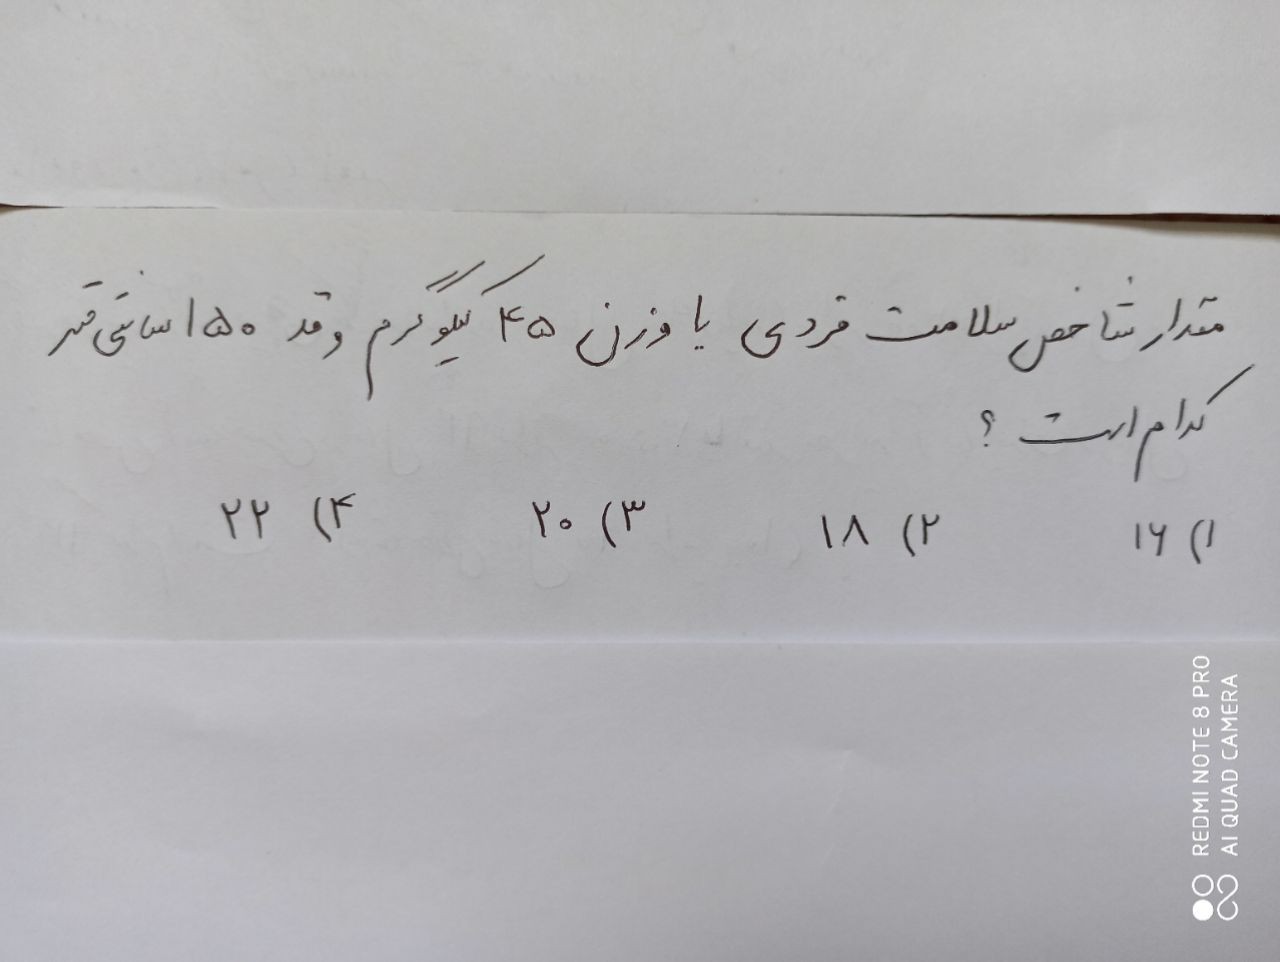 مقدار شاخص سلامت فردی با وزن ۴۵ کیلوگرم و قد ۱۵۰ سانتی متر
کدام است ؟
۱) ۱۶ ۲) ۱۸ ۳) ۲۰ ۴) ۲۲
REDMI NOTE 8 PRO
AI QUAD CAMERA